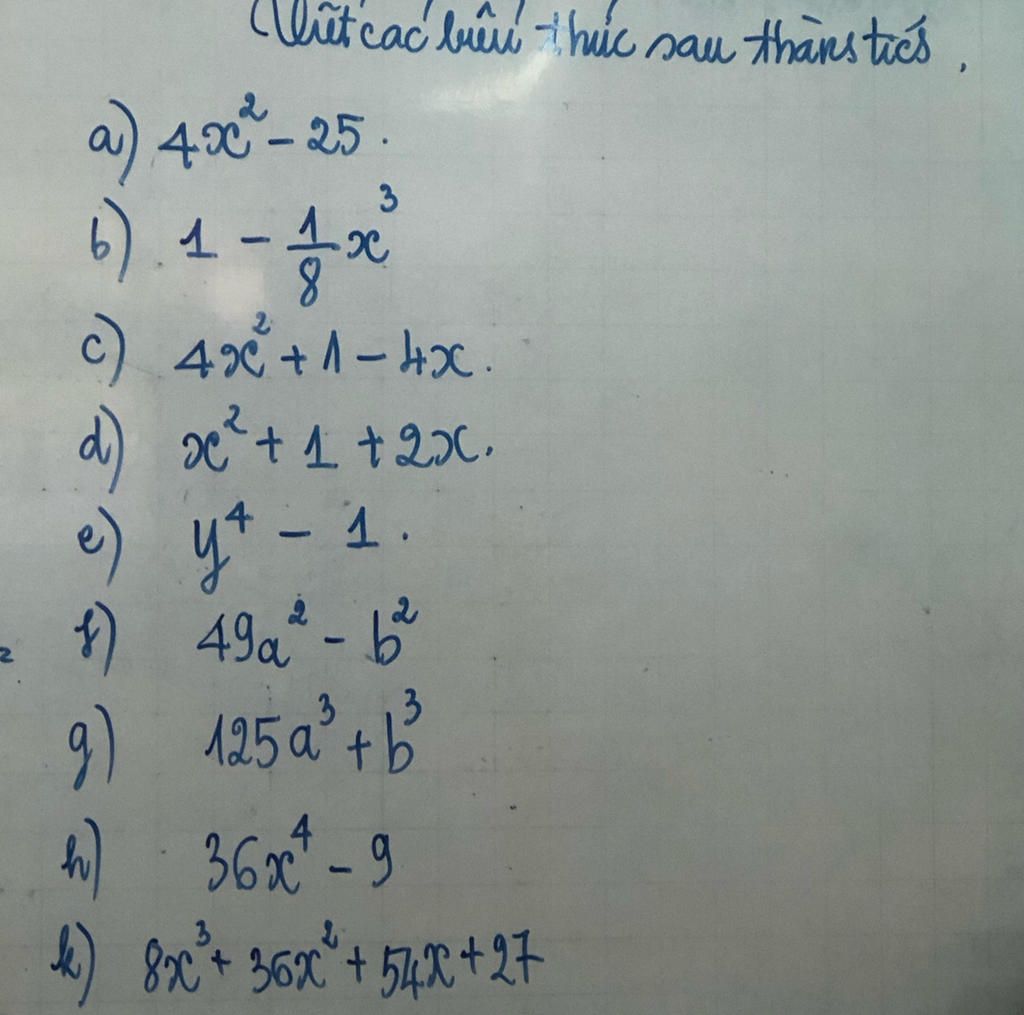 Viết các biểu thức sau thành tích.
a) 4x² - 25.
b) 1 - 1/8 x³
c) 4x² + 1 - 4x.
d) x² + 1 + 2x.
e) y⁴ - 1.
f) 49a² - b²
g) 125a³ + b³
h) 36x⁴ - 9
k) 8x³ + 36x² + 54x + 27